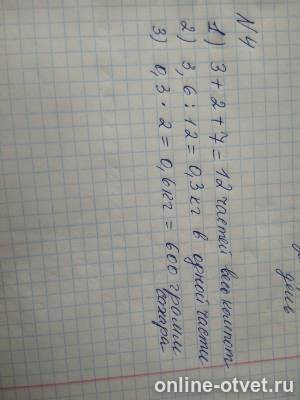 день
№4
1) 3+2+7=12 частей весь компот
2) 3,6:12=0,3 кг в одной части
3) 0,3·2=0,6кг=600 грамм
сахара
online-otvet.ru